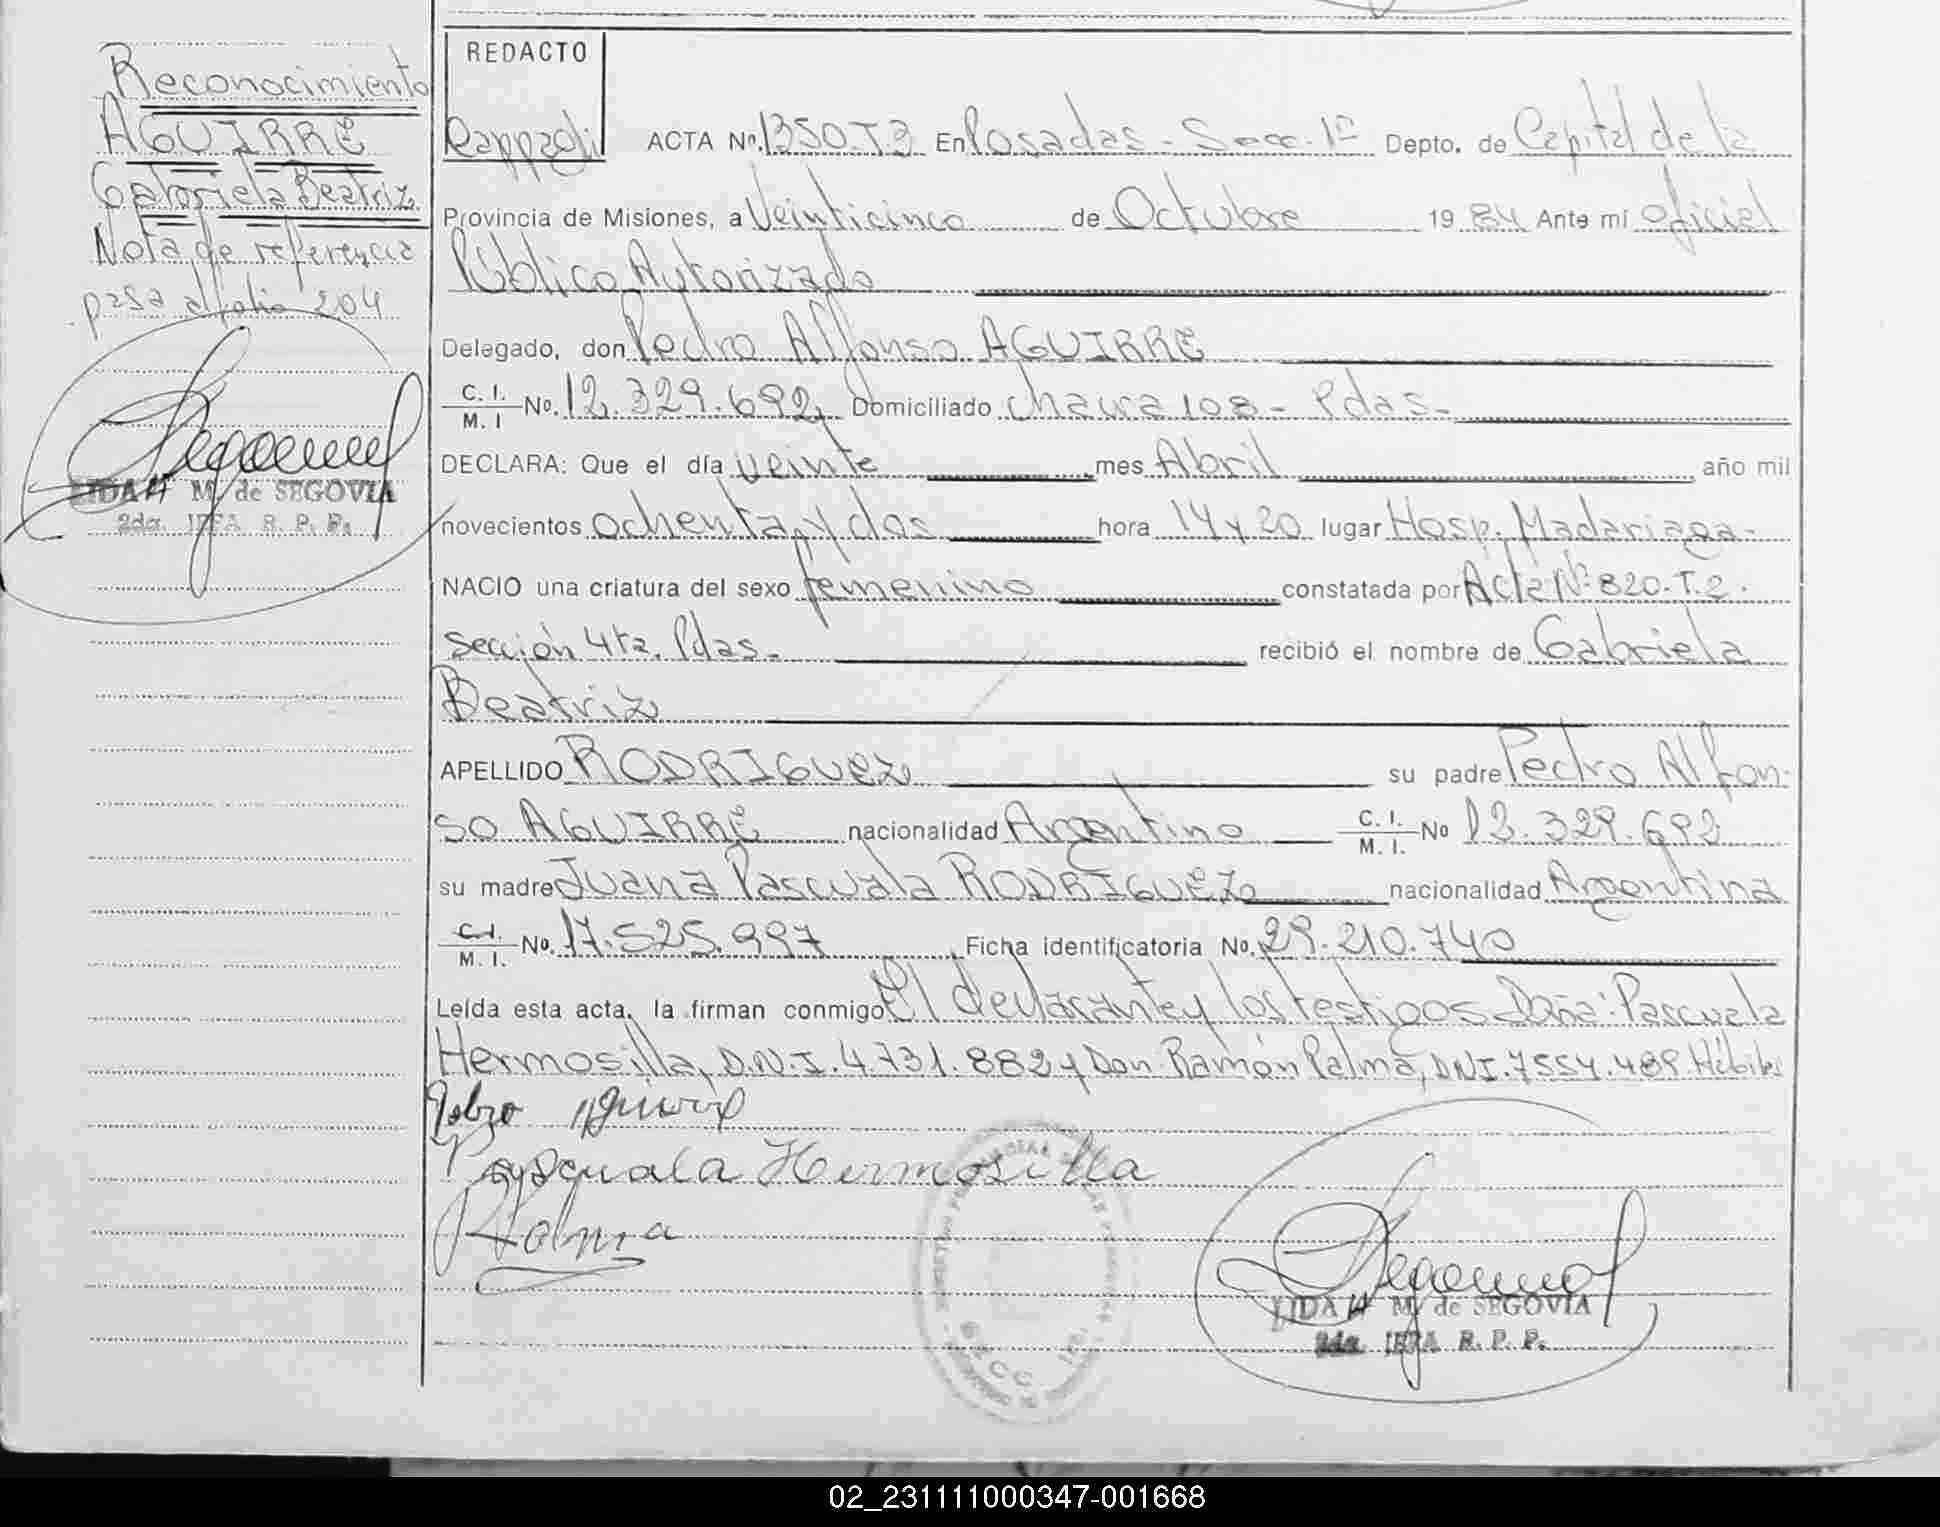 Reconocimiento
AGUIRRE
Gabriela Beatriz
Nota de referencia
pasa al folio 204
LIDA M. de SEGOVIA
2da. JEFA R. P. P.
REDACTO
ACTA Nº. 1350.T.3 En Posadas - Secc. 1ª Depto. de Capital de la
Provincia de Misiones, a Veinticinco de Octubre 19 84 Ante mí oficial
Público Autorizado
Delegado, don Pedro Alfonso AGUIRRE
C. I. M. I Nº. 12.329.692, Domiciliado chacra 108 - Pdas-
DECLARA: Que el día veinte mes Abril año mil
novecientos ochenta y dos hora 14 y 20 lugar Hosp. Madariaga-
NACIO una criatura del sexo femenino constatada por Acta Nº 820.T.2.
sección 4ta. Pdas- recibió el nombre de Gabriela
Beatriz
APELLIDO RODRIGUEZ su padre Pedro Alfon-
so AGUIRRE nacionalidad Argentino C. I. M. I. No 12.329.692
su madre Juana Pascuala RODRIGUEZ nacionalidad Argentina
C.I. M. I. Nº. 17.525.997 Ficha identificatoria Nº. 29.210.740
Leída esta acta, la firman conmigo El declarante y los testigos Doña: Pascuala
Hermosilla, D.N.I. 4.731.882 y Don Ramón Palma, DNI. 7554.489. Hábiles
Pedro Aguirre
Pascuala Hermosilla
Palma
LIDA M. de SEGOVIA
2da. JEFA R. P. P.
02_231111000347-001668